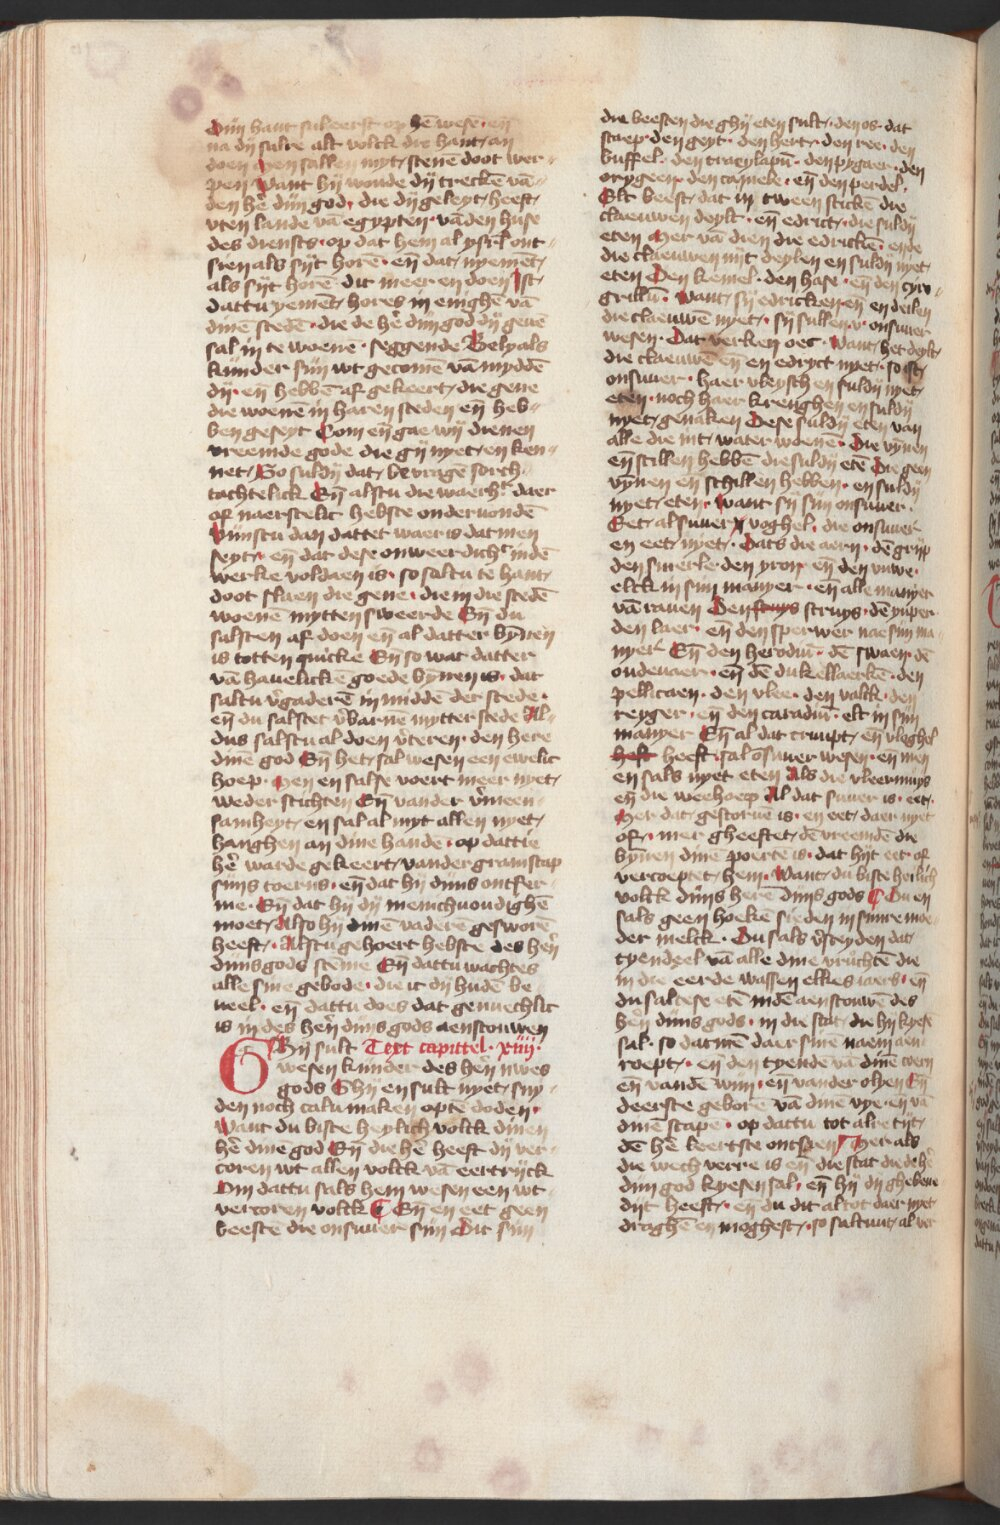 Dijn hant sal eerst op hē wesē · eñ
na dij sal̄re alt volck die hant an
doen Hen sallen myt stenē doot wer-
pen Want hij woude dij treckē vā
den hē dijn god · die dij geleyt heeft
vten lande vā egypten · vā den huse
des diensts · op dat hem al ysrl̄ ont-
sien als sijt horē · eñ dat nyemēt
als sijt horē dit meer en doen Ist
dattu yemēt hores in enighē vā
dinē stedē · die de hē dijn god dij geuē
sal in te woenē · seggende Belyals
kinder sijn wt gecomē vā myddē
dij · eñ hebbē af gekeert die gene
die woenē in haren steden eñ heb-
ben geseyt Com eñ gae wij dienen
vreemde gode die gij nyet en ken-
net So suldij dat bevragē sorch-
tachtelick Eñ alstu die waerh̄t daer
of naerstelic hebste ondervondē
Vijnstu dan dattet waer is datmen
seyt · eñ dat dese onweerdich̄t indē
werke voldaen is · so saltu te hant
doot slaen die gene · die in die stedē
woenē mytten sweerde Eñ du
salsten af doen eñ al datter bynnen
is totten quicke Eñ so wat datter
vā hauelickē goede bynnen is · dat
saltu v̄gaderē in middē der stede ·
eñ du salstet v̄barnē mytter stede Al-
dus salstu al doen v̄teren · den here
dinē god Eñ het sal wesen een ewelic
hoep · Men en salse voert meer nyet
weder stichten Eñ vander v̄meen-
samheyt en sal al myt allen nyet
hanghen an dine handē · op dattie
hē warde gekeert vander gramscap
sijns toerns · eñ dat hij dijns ontfer-
me · Eñ dat hij dij menichuoudighē
moet Also hij dinē vaderē geswore
heeft · Alstu gehoert hebste des hēn
dijns gods stēme Eñ dattu wachtes
alle sine gebode · die ic dij hudē be-
ueel · eñ dattu does dat genuechlic
is in des hēn dijns gods aenscouwen
Ghij sult Text capittel · xiiij ·
wesen kinder des hēn uwes
gods Ghij en sult nyet snij-
den noch calu maken optē doden ·
Want du biste heylich volck dinen
hē dinē god Eñ die hē heeft dij ver-
coren wt allen volck vā eertrijck
Om dattu sals hem wesen een wt
vercoren volck Eñ en eet geen
beestē die onsuuer sijn Dit sijn
die beesten die ghij eten sult · den os · dat
scaep · den geyt · den hert · den ree · den
buffel · den traeylapū · den pygaer · den
orygeen · den camele · eñ den perdel ·
Elt beest dat in tween stickē die
claeuwen deylt · eñ edrict · die suldij
eten Mer vā dien die edrickē ende
die claeuwen nijt deylen en suldij nyet
eten Den kemel · den hase · eñ den cyro-
grillū · Want sij edricken eñ en deilen
die claeuwē nyet · sij sullen v onsuuer
wesen · Dat verken oec · Want het deylt
die claeuwē eñ en edryct nyet · so ist
onsuuer · haer vleysch en suldij nyet
eten · noch haer krenghen en suldij
nyet genaken Dese suldij eten van
alle die int water woenē · Die vynen
eñ scillen hebbē die suldij etē Die geen
vynen eñ schillen hebben · en suldij
nyet eten · Want sij sijn onsuuer ·
Eet al suuer voghel · die onsuuer
en eet nyet · Dats die aern · dē grijp
den smerle · den yron eñ den vuwe ·
elck in sijn manyer · eñ alle manyer
vā rauen Den struys struys · dē yuper ·
den laer · eñ den sperwer nae sijn ma-
nyer Eñ den herodiū · dē swaen · dē
oudeuaer · eñ dē dukellaerkē · den
pellicaen · den vlee · den valck · den
reyger · eñ den caradiū · elt in sijn
manyer Eñ al dat cruupt eñ vloghel
heft heeft · sal ōsuuer wesen · eñ men
en sals nyet eten Als die vleermuys
eñ die weehoep Al dat suuer is · eet ·
Mer dat gestoruē is · en eet daer nyet
of · mer gheeftet dē vreemdē die
bynen dinē poertē is · dat hijt eet · of
vercoeptet hem · Want du biste heilich
volck dijns herē dijns gods Du en
sals geen hoekē sieden in sinre moe-
der melck · Du sals v̄sceyden dat
tyendeel vā alle dine vruchtē die
in die eerde wassen elkes iaers · eñ
du saltese etē indē aenscouwē des
hēn dijns gods · in die stat die hij kyesē
sal · so datmē daer sine naem aen
roept · eñ den tyende vā dinē coern
eñ vandē wijn · eñ vander olyen Eñ
deerste geborē vā dinē vye · eñ vā
dinē scape · op dattu tot alre tijt
dē hē leertste ontsien Mer als
die wech verre is eñ die stat die de hē
dijn god kyesen sal · eñ hij dij ghebene
dijt heeft · eñ du dit al tot daer nyet
draghē en moghest · so saltuut al ver